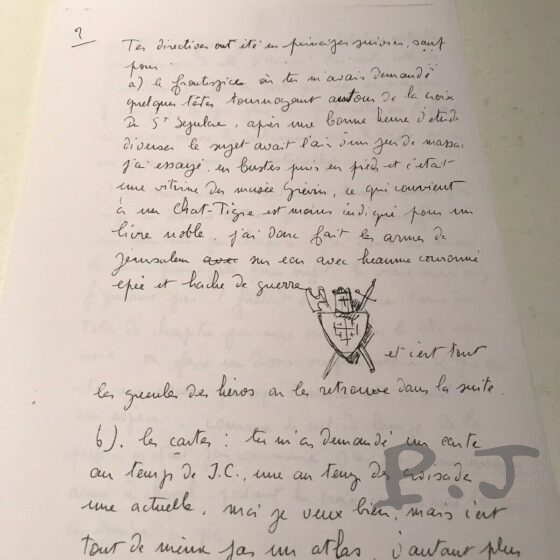 2
Tes directives ont été en principe suivies, sauf
pour :
a) le frontispice où tu m'avais demandé
quelques têtes tournoyant autour de la croix
du St Sépulcre, après une bonne heure d'étude
diverses le sujet avait l'air d'un jeu de massacre
j'ai essayé, en bustes puis en pieds et c'était
une vitrine du musée Grévin, ce qui convient
à un Chat-Tigre est moins indiqué pour un
livre noble. j'ai donc fait les armes de
Jerusalem avec sur écu avec heaume couronné
épée et hache de guerre
et c'est tout
les gueules des héros on les retrouve dans la suite.
b). les cartes : tu m'as demandé un carte
au temps de J.C., une au temps des croisades
une actuelle, moi je veux bien, mais c'est
tout de même pas un atlas, d'autant plus
P.J